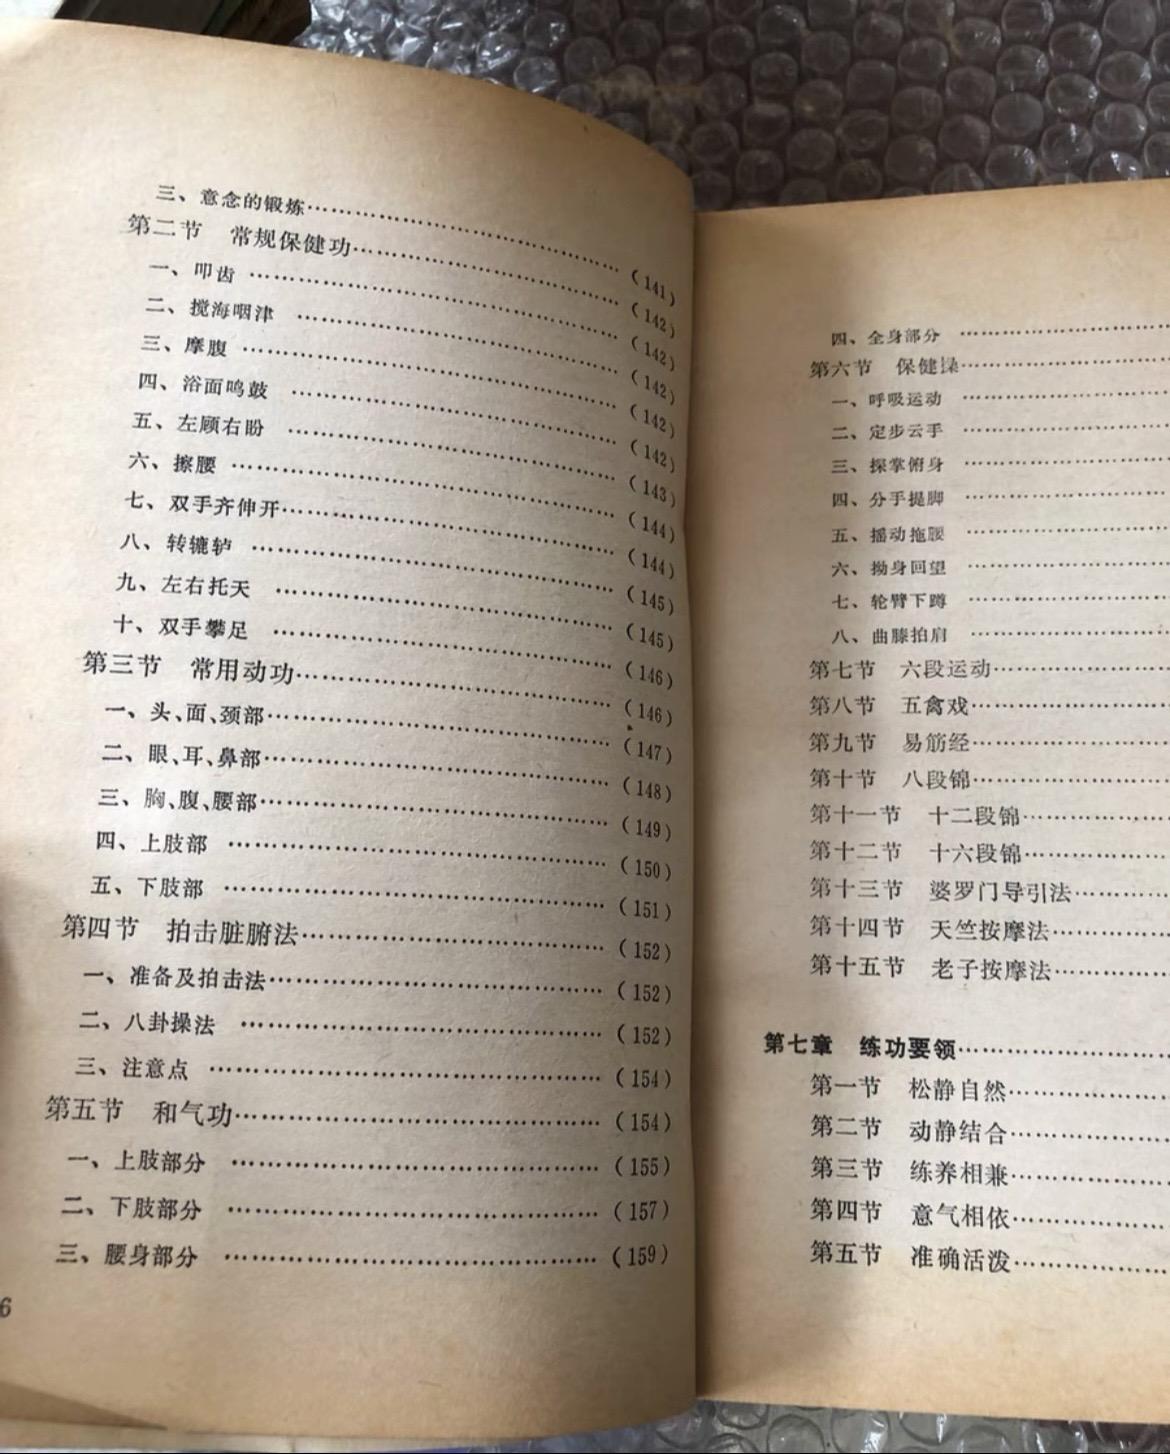 三、意念的锻炼……………………………(141)
第二节 常规保健功……………………………(142)
一、叩齿 ……………………………(142)
二、搅海咽津 ……………………………(142)
三、摩腹 ……………………………(142)
四、浴面鸣鼓 ……………………………(142)
五、左顾右盼 ……………………………(143)
六、擦腰 ……………………………(144)
七、双手齐伸开……………………………(144)
八、转辘轳 ……………………………(145)
九、左右托天 ……………………………(145)
十、双手攀足 ……………………………(146)
第三节 常用动功……………………………(146)
一、头、面、颈部……………………………(147)
二、眼、耳、鼻部……………………………(148)
三、胸、腹、腰部……………………………(149)
四、上肢部 ……………………………(150)
五、下肢部 ……………………………(151)
第四节 拍击脏腑法……………………………(152)
一、准备及拍击法……………………………(152)
二、八卦操法 ……………………………(152)
三、注意点 ……………………………(154)
第五节 和气功……………………………(154)
一、上肢部分 ……………………………(155)
二、下肢部分 ……………………………(157)
三、腰身部分 ……………………………(159)
6
四、全身部分 …………………
第六节 保健操…………………
一、呼吸运动 …………………
二、定步云手 …………………
三、探掌俯身 …………………
四、分手提脚 …………………
五、摇动拖腰 …………………
六、拗身回望 …………………
七、轮臂下蹲 …………………
八、曲膝拍肩 …………………
第七节 六段运动…………………
第八节 五禽戏…………………
第九节 易筋经…………………
第十节 八段锦…………………
第十一节 十二段锦…………………
第十二节 十六段锦…………………
第十三节 婆罗门导引法…………………
第十四节 天竺按摩法…………………
第十五节 老子按摩法…………………
第七章 练功要领…………………
第一节 松静自然…………………
第二节 动静结合…………………
第三节 练养相兼…………………
第四节 意气相依…………………
第五节 准确活泼…………………